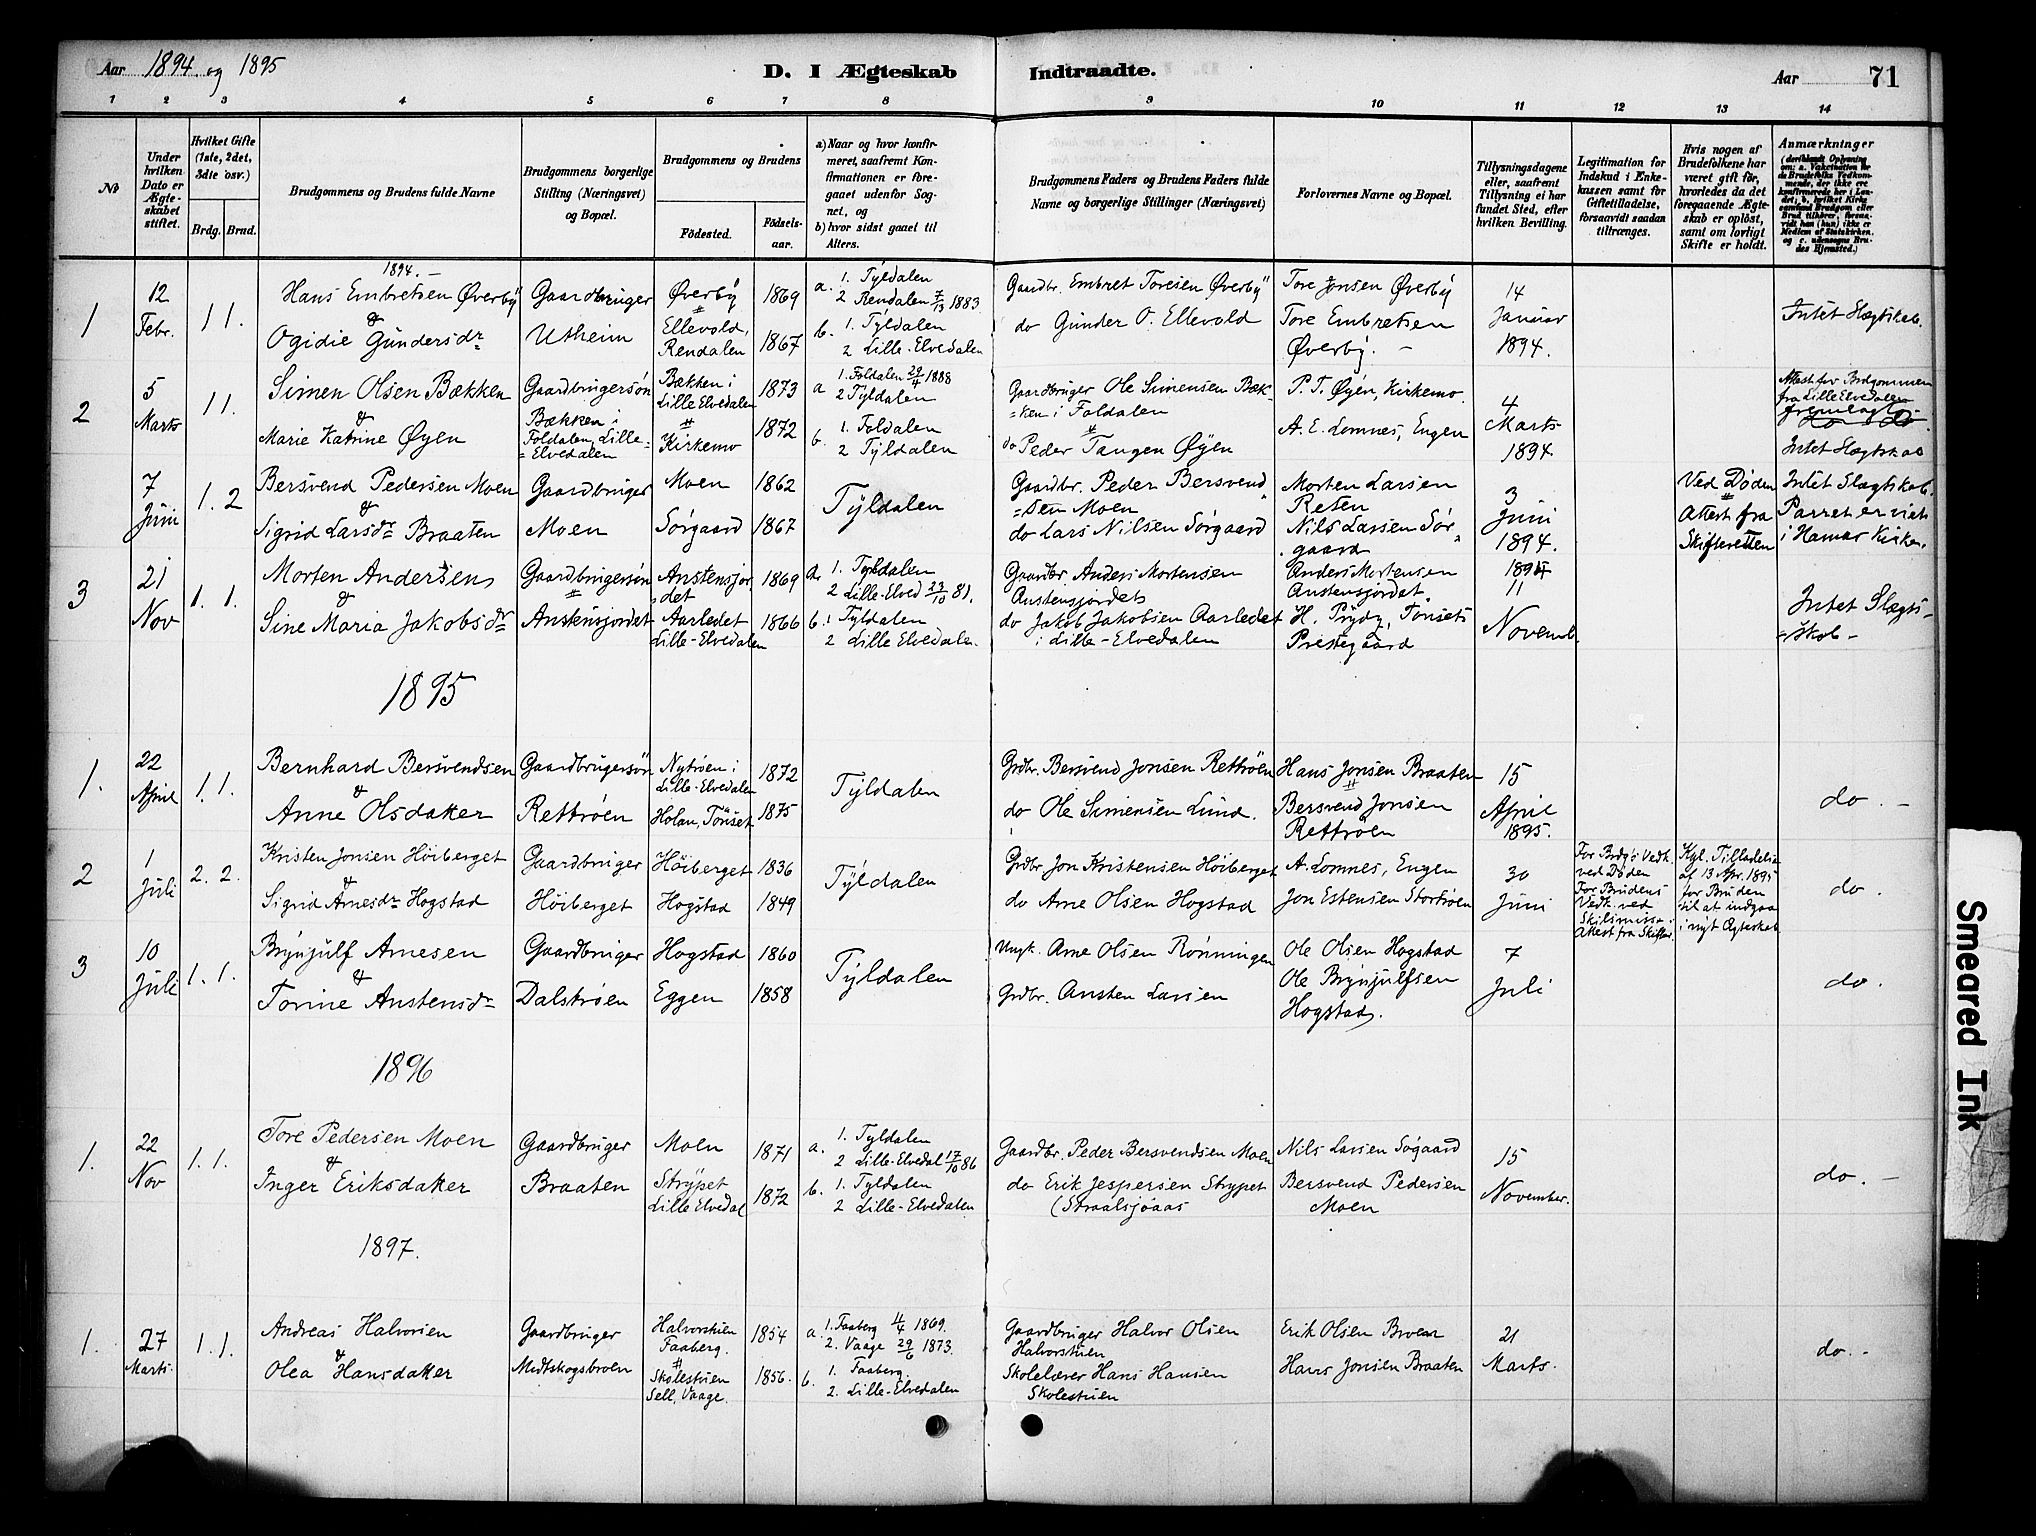 Aar 1894 og 1895
D. I Ægteskab Indtraadte.
Aar 71
1 2 3 4 5 6 7 8 9 10 11 12 13 14
No
Under hvilken Dato er Ægteskabet stiftet.
Hvilket Gifte (1ste, 2det, 3die osv.)
Brdg. Brud.
Brudgommens og Brudens fulde Navne
Brudgommens borgerlige Stilling (Næringsvei) og Bopæl.
Brudgommens og Brudens
Fødested.
Fødselsaar.
a) Naar og hvor konfirmeret, saafremt Konfirmationen er foregaaet udenfor Sognet, og
b) hvor sidst gaaet til Alters.
Brudgommens Faders og Brudens Faders fulde Navne og borgerlige Stillinger (Næringsvei)
Forlovernes Navne og Bopæl.
Tillysningsdagene eller, saafremt Tillysning ei har fundet Sted, efter hvilken Bevilling.
Legitimation for Indskud i Enkekassen samt for Giftetilladelse, forsaavidt saadan tiltrænges.
Hvis nogen af Brudefolkene har været gift før, hvorledes da det foregaaende Ægteskab er opløst, samt om lovligt Skifte er holdt.
Anmærkninger
1894. –
1 12 Febr. 1 1. Hans Embretsen Øverby & Ogidie Gundersdr
Gaardbruger Utheim
Øverby Ellevold, Rendalen
1869 1867
a. 1. Tyldalen 2 Rendalen 7/13 1883.
b. 1. Tyldalen 2 Lille-Elvedalen
Gaardbr. Embret Toresen Øverby
do Gunder O. Ellevold
Tore Jonsen Øverby
Tore Embretsen Øverby. –
14 Januar 1894.
Intet Slægtskab.
2 5 Marts 1 1. Simen Olsen Bækken & Marie Katrine Øyen
Gaardbrugersøn Bækken i Foldalen, Lille-Elvedalen
Bækken i Lille Elvedalen Kirkemo
1873 1872
a 1. Foldalen 29/4 1888 2 Tyldalen
b. 1. Foldalen 2 Tyldalen
Gaardbruger Ole Simensen Bækken i Foldalen
do Peder Tangen Øyen
P. T. Øyen, Kirkemo.
A. E. Lomnes, Engen
4 Marts 1894
Attest for Brdgommen fra Lille Elvedalen fremlagt do do
Intet Slægtskab
7 Juni 1. 2 Bersvend Pedersen Moen & Sigrid Larsdr Braaten
Gaardbruger Moen
Moen Sørgaard
1862 1867
Tyldalen
Gaardbr. Peder Bersvendsen Moen
do Lars Nilsen Sørgaard
Morten Larsen Reten
Nils Larsen Sørgaard
3 Juni 1894.
Ved Døden Attest fra Skifteretten
Intet Slægtskab. Parret er viet i Hamar Kirke.
3 21 Nov 1. 1. Morten Andersen & Sine Maria Jakobsdr
Gaardbrugersøn Austensjordet
Austensjordet Aarledet Lille-Elvedalen
1869 1866
a. 1. Tyldalen 2 Lille-Elved 23/10 81.
b. 1 Tyldalen 2 Lille Elvedalen.
Gaardbr Anders Mortensen Austensjordets
do Jakob Jakobsen Aarledet i Lille-Elvedalen
Anders Mortensen Austensjordet.
H. Prydz, Tønset Prestegaard
1894 11 Novemb.
Intet Slægtskab –
1895
1. 22 April 1. 1. Bernhard Bersvendsen & Anne Olsdatter
Gaardbrugersøn Rettrøen
Nytrøen i Lille-Elvedalen Holan, Tønset
1872 1875
Tyldalen
Grdbr. Bersvend Jonsen Rettrøen
do Ole Simensen Lund.
Hans Jonsen Braaten
Bersvend Jonsen Rettrøen
15 April 1895.
do. –
2 1 Juli 2. 2. Kristen Jonsen Høiberget & Sigrid Arnesdr Hogstad
Gaardbruger Høiberget
Høiberget Hogstad
1836 1849
Tyldalen
Grdbr. Jon Kristensen Høiberget
do Arne Olsen Hogstad
A. Lomnes, Engen
Jon Estensen Stortrøen
30 Juni
For Brdg's Vedk. ved Døden For Brudens Vedk. ved Skilsmisse. Attest fra Skifter.
Kgl. Tilladelse af 13 Apr. 1895 for Bruden til at indgaa i nyt Ægteskab
do.
3 10 Juli 1. 1. Brynjulf Arnesen & Torine Austensdr
Gaardbruger Dalstrøen
Hogstad Eggen
1860 1858
Tyldalen
Ungk. Arne Olsen Rønningen
Grdbr. Austen Larsen
Ole Olsen Hogstad
Ole Brynjulfsen Hogstad.
7 Juli
do.
1896
1. 22 Nov 1. 1. Tore Pedersen Moen & Inger Eriksdatter
Gaardbruger Braaten
Moen Strypet Lille Elvedal
1871 1872
a. 1. Tyldalen 2 Lille-Elvedal 17/10 86
b. 1. Tyldalen 2 Lille-Elvedalen
Gaardbr. Peder Bersvendsen Moen
do Erik Jespersen Strypet (Straalsjøaas
Nils Larsen Søgaard
Bersvend Pedersen Moen
15 November.
do. –
1897.
1. 27 Marts. 1. 1. Andreas Halvorsen & Olea Hansdatter
Gaardbruger Midtskogsbroen
Halvorstuen Faaberg. Skolestuen Sell, Vaage.
1854 1856.
a. 1. Faaberg 11/4 1869. 2. Vaage 29/6 1873.
b. 1. Faaberg. 2. Lille-Elvedalen
Gaardbruger Halvor Olsen Halvorstuen
Skolelærer Hans Hansen Skolestuen
Erik Olsen Broen
Hans Jonsen Braaten
21 Marts.
do. –
Smeared Ink